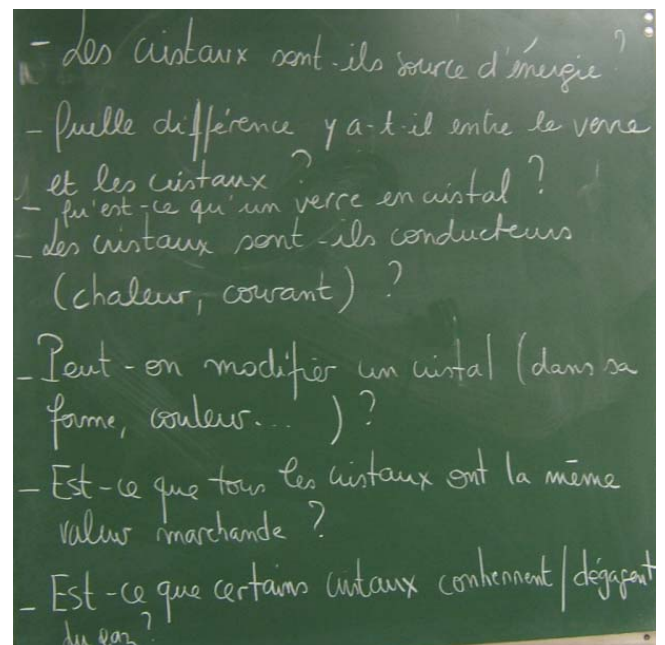 - Les cristaux sont-ils source d'énergie ?
- Quelle différence y a-t-il entre le verre
et les cristaux ?
- Qu'est-ce qu'un verre en cristal ?
- Les cristaux sont-ils conducteurs
(chaleur, courant) ?
- Peut-on modifier un cristal (dans sa
forme, couleur... ) ?
- Est-ce que tous les cristaux ont la même
valeur marchande ?
- Est-ce que certains cristaux contiennent/dégagent
du gaz ?